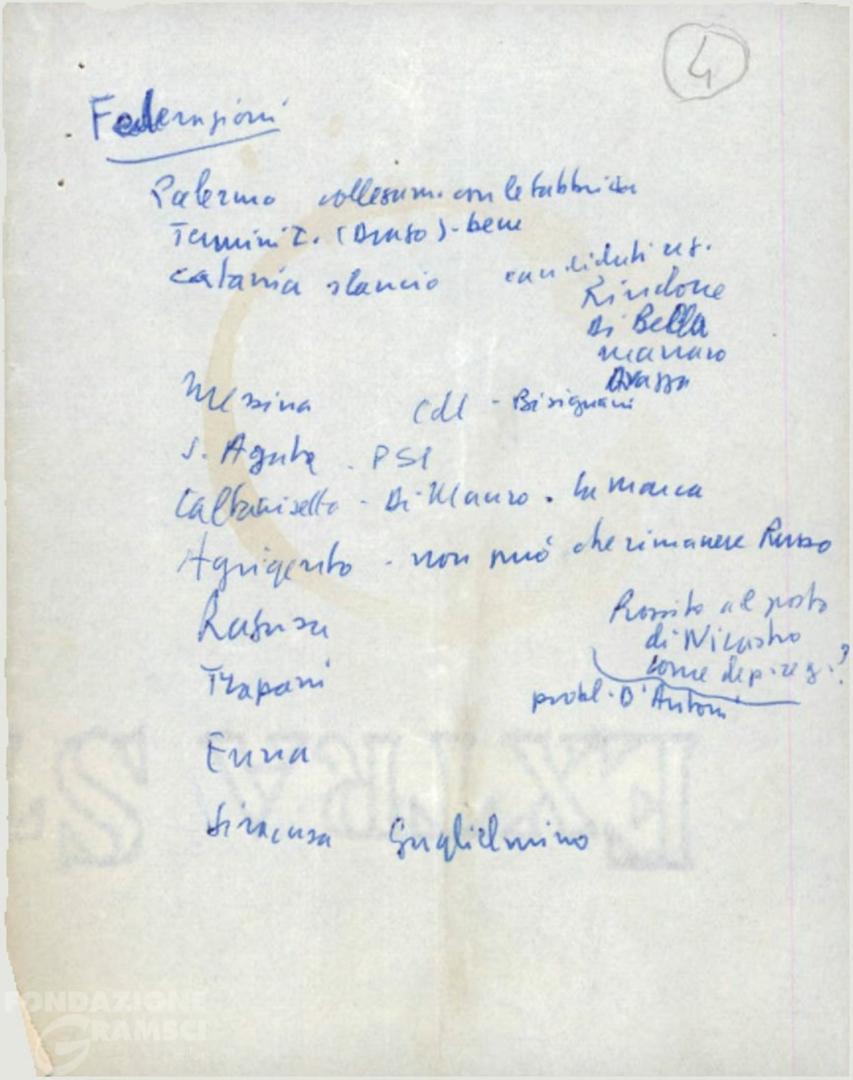 4
Federazioni
Palermo collegam. con le fabbriche
Termini I. (Drago) - bene
Catania slancio candidati
Rindone
Di Bella
Marraro
Messina CdL - Bisignani
S. Agata - PSI
Caltanisetta - Di Mauro. La Marca
Agrigento - non può che rimanere Russo
Ragusa
Rossitto al posto
di Nicastro
come dep. reg.?
Trapani
probl. D'Antoni
Enna
Siracusa Guglielmino
EXTRA S
FONDAZIONE
GRAMSCI